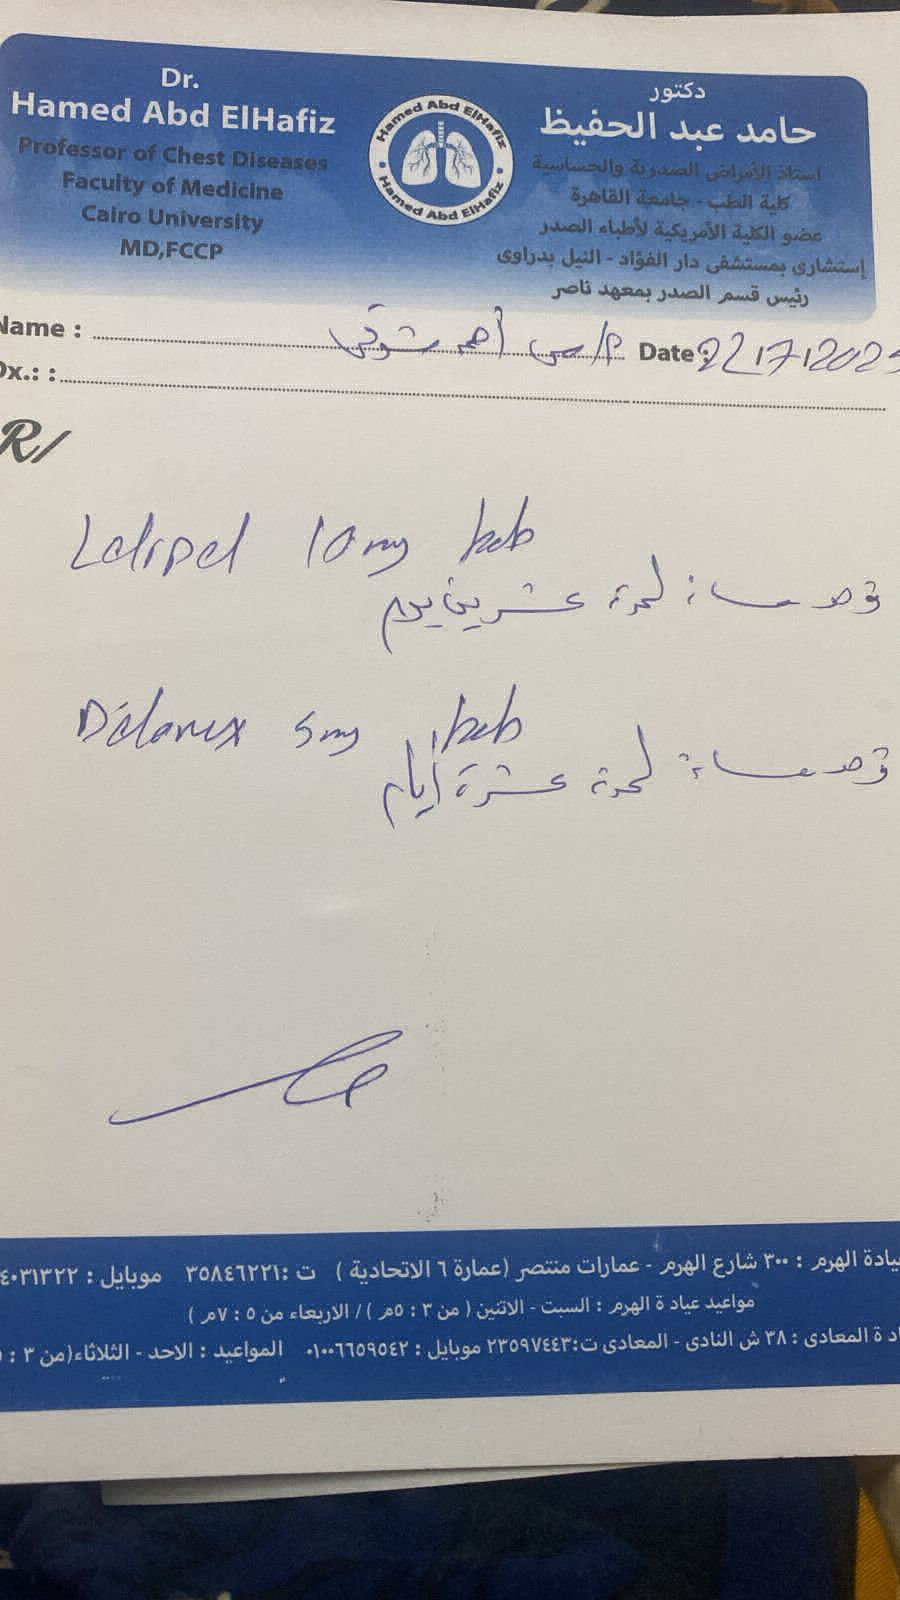 Dr.
Hamed Abd ElHafiz
Professor of Chest Diseases
Faculty of Medicine
Cairo University
MD,FCCP
Hamed Abd ElHafiz
Hamed Abd ElHafiz
دكتور
حامد عبد الحفيظ
استاذ الأمراض الصدرية والحساسية
كلية الطب - جامعة القاهرة
عضو الكلية الأمريكية لأطباء الصدر
إستشاري بمستشفى دار الفؤاد - النيل بدراوى
رئيس قسم الصدر بمعهد ناصر
Name : أحمد شوقى
Date : 22/7/2025
Dx.: :
R/
10 mg tab
قرص مساءً لمدة عشرين يوم
5 mg tab
قرص مساءً لمدة عشرة أيام
عيادة الهرم : ٣٠٠ شارع الهرم - عمارات منتصر (عمارة ٦ الاتحادية ) ت :٣٥٨٤٦٢٢١ موبايل : ٤٠٣١٣٢٢
مواعيد عيادة الهرم : السبت - الاتنين ( من ٣ : ٥م ) / الاربعاء من ٥ : ٧م )
ة المعادى : ٣٨ ش النادى - المعادى ت:٢٣٥٩٧٤٤٣ موبايل : ٠١٠٠٦٦٥٩٥٤٢ المواعيد : الاحد - الثلاثاء(من ٣ :